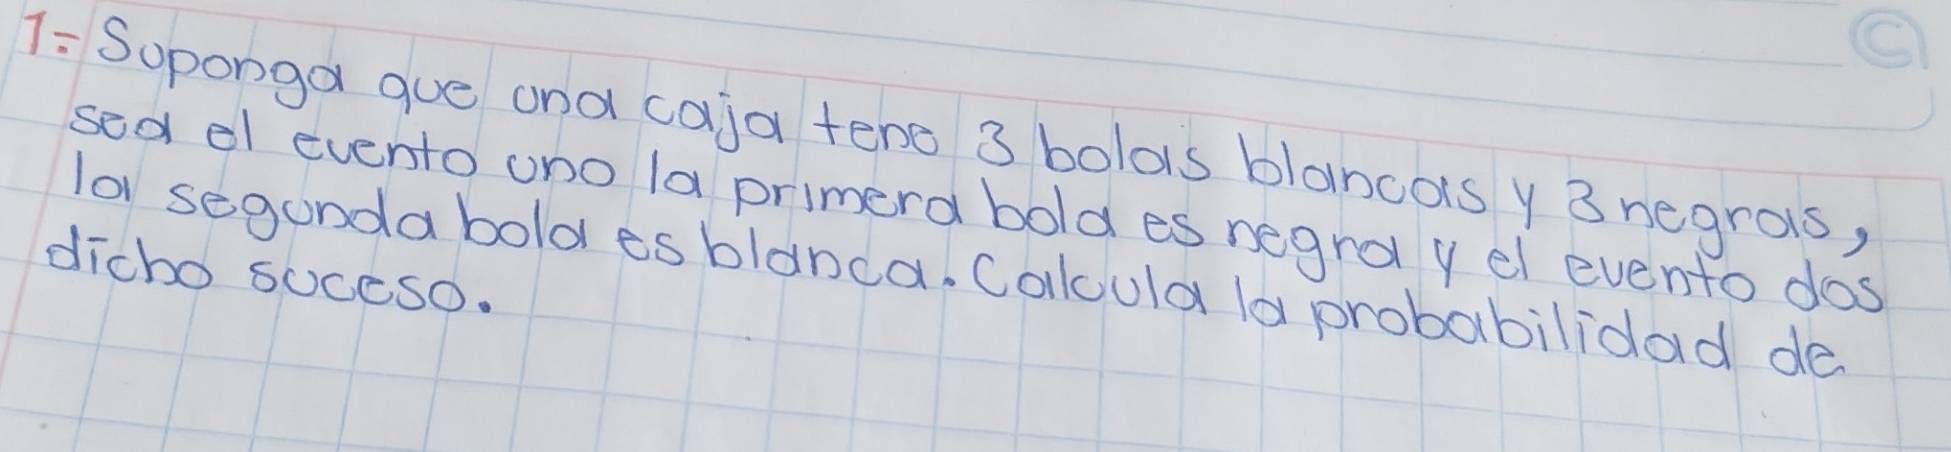 1.- Suponga que una caja tene 3 bolas blancas y 3 negras,
sea el evento uno la primera bola es negra y el evento dos
la segunda bola es blanca. Calcula la probabilidad de
dicho suceso.